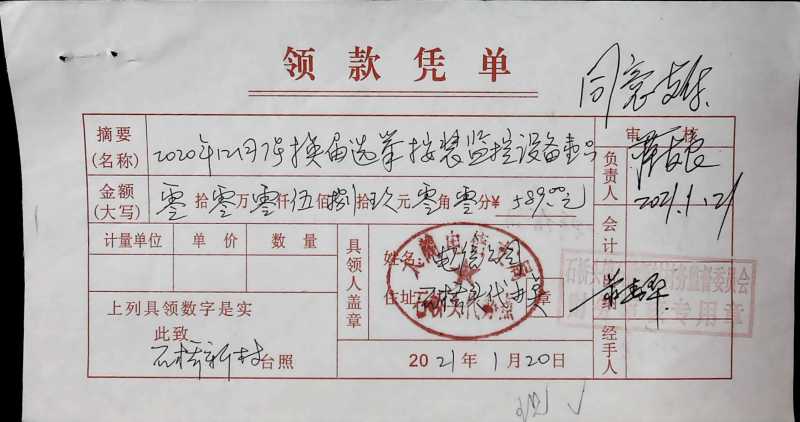 领款凭单
同意支付
摘要(名称) 2020年12月7号换届选举按装监控设备
审核
负责人
2021.1.21
金额(大写) 零拾零万零仟伍佰捌拾玖元零角零分¥ 589.00元
计量单位 单价 数量
具领人盖章
姓名 电信公司
住址 石桥头代办点 章
会计
出纳
经手人
上列具领数字是实
此致
石桥新村台照
2021年1月20日
监督委员会
专用章